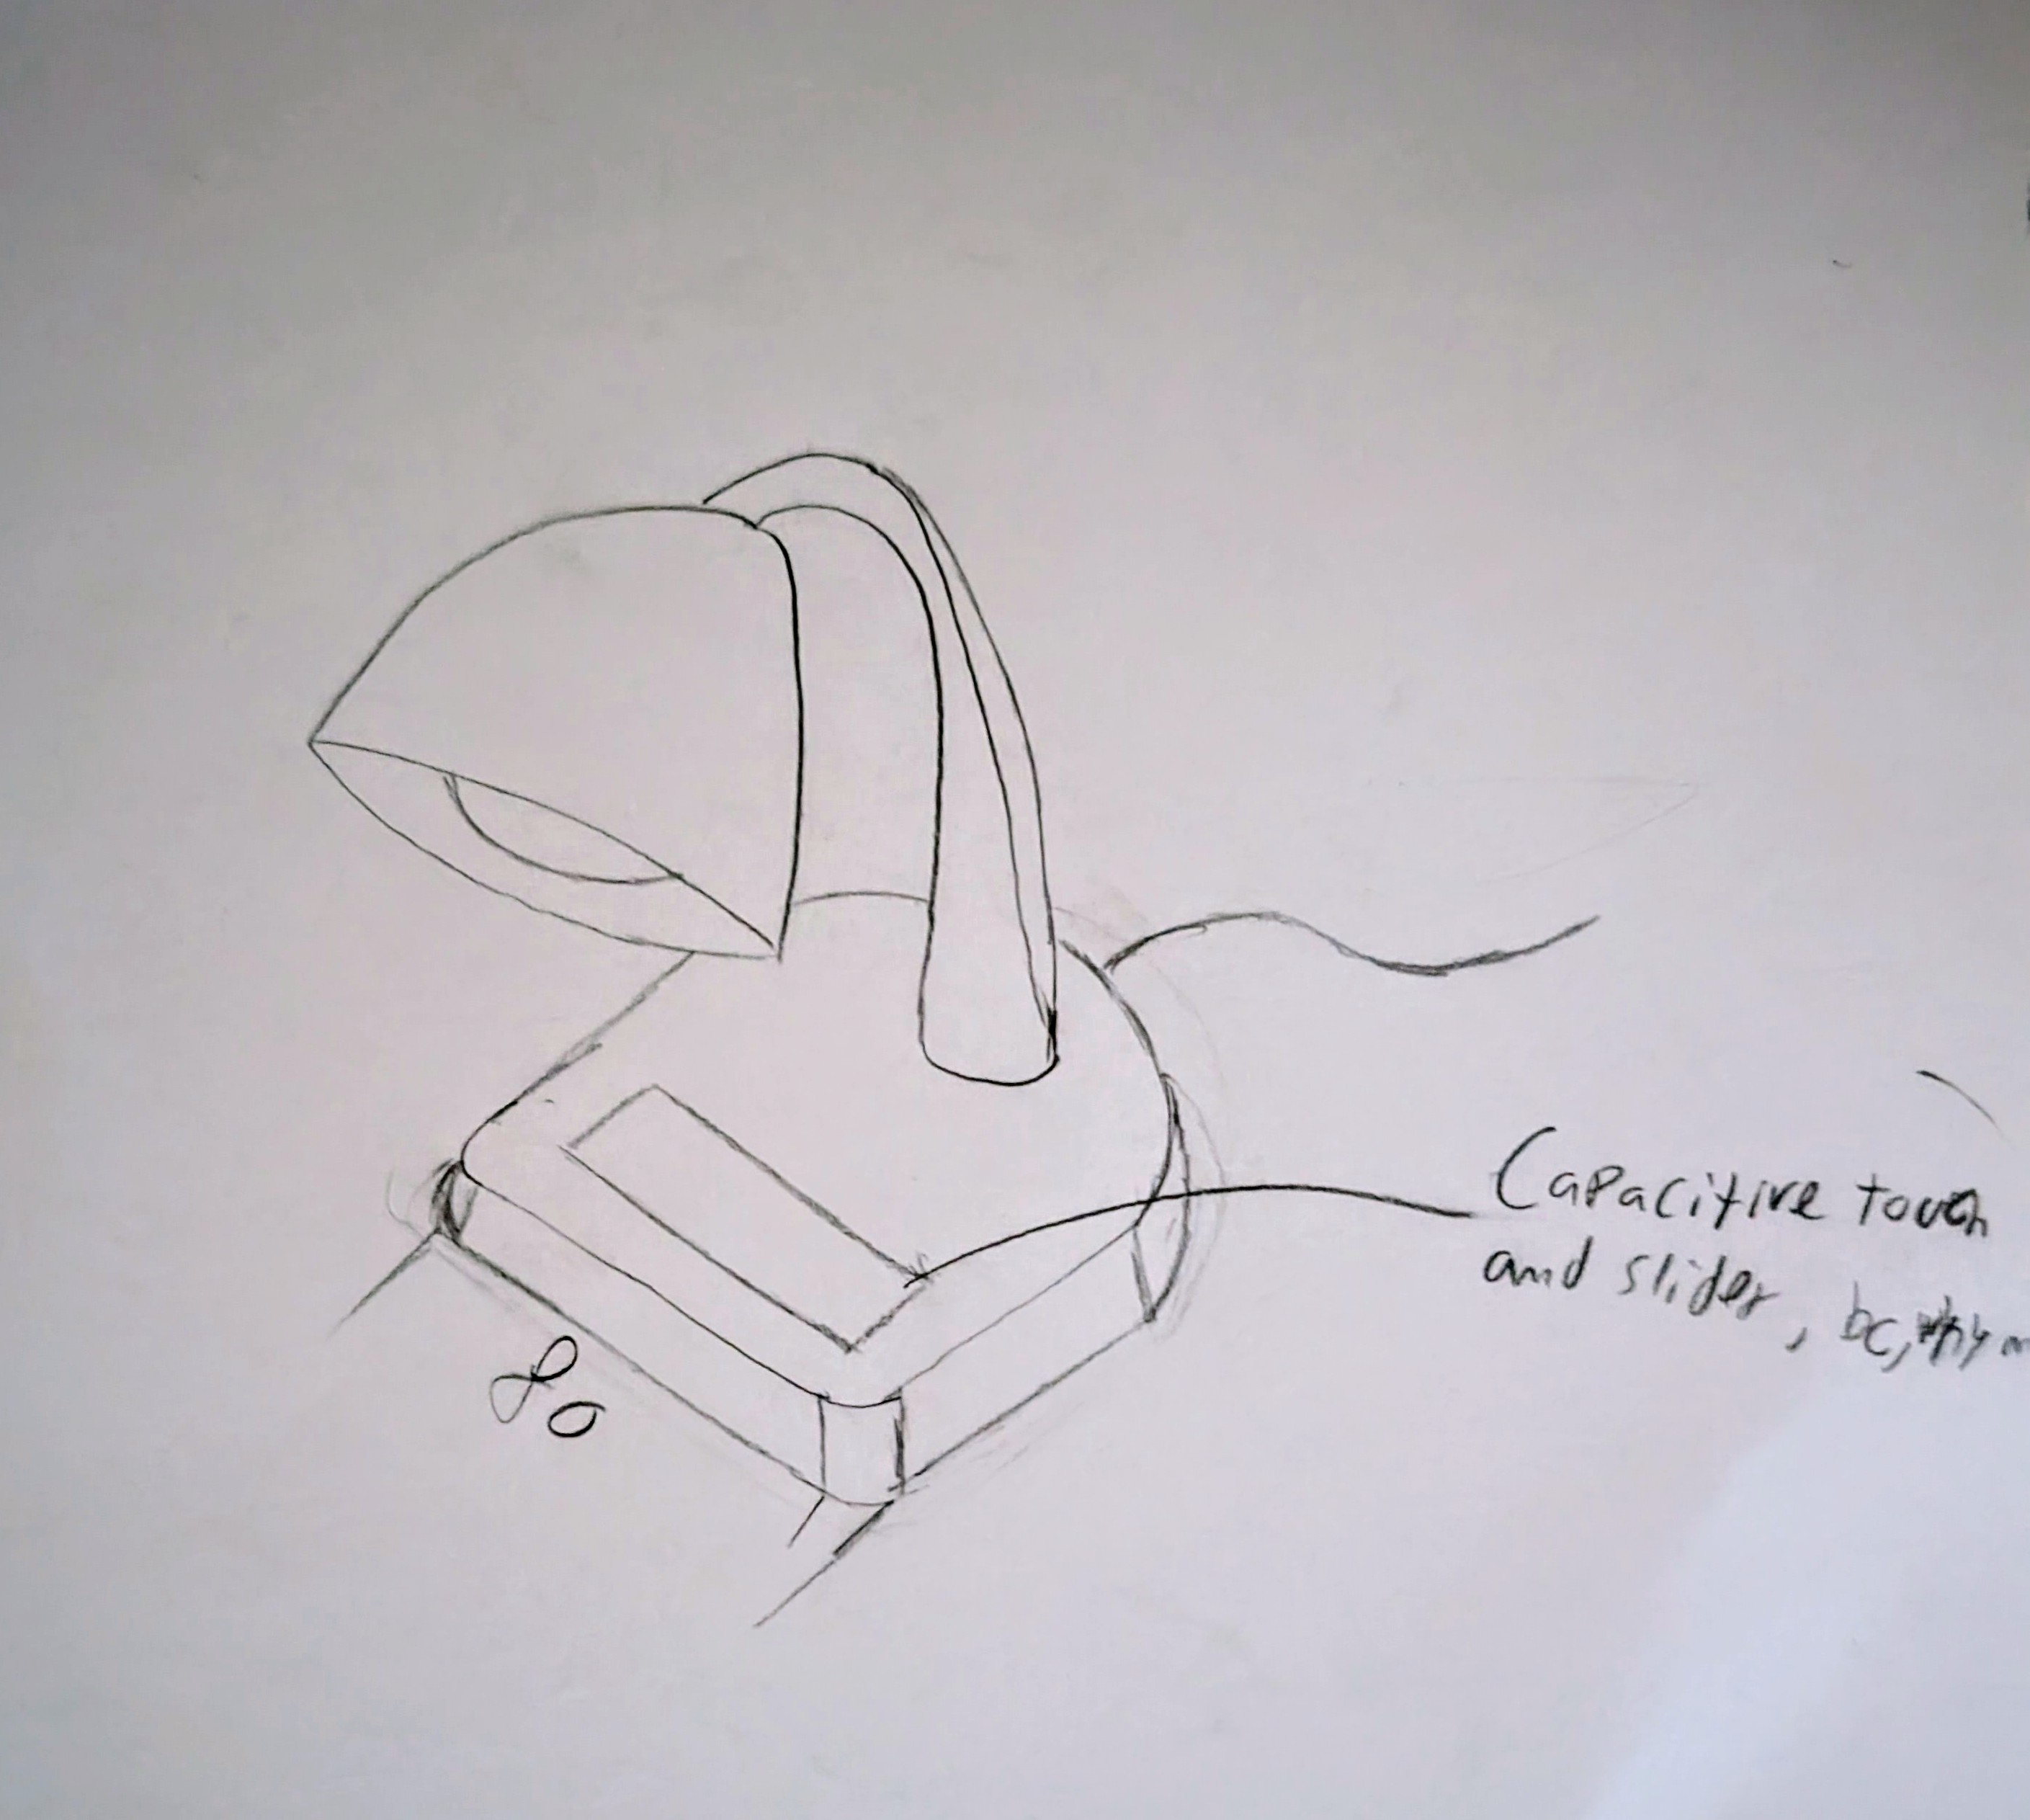 Capacitive touch
and slider, bc,
80